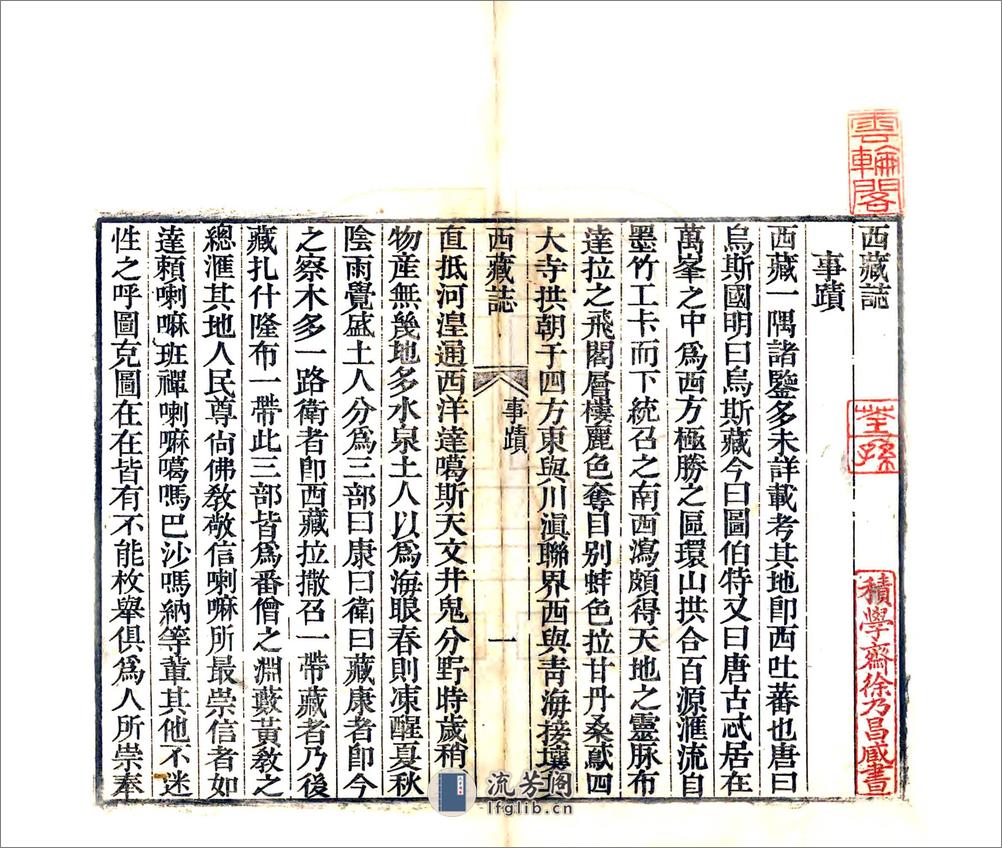 西藏誌
事蹟
西藏一隅諸鑒多未詳載考其地卽西吐蕃也唐曰
烏斯國明曰烏斯藏今曰圖伯特又曰唐古忒居在
萬峯之中爲西方極勝之區環山拱合百源滙流自
墨竹工卡而下統召之南西瀉頗得天地之靈脉布
達拉之飛閣層樓麗色奪目别蚌色拉甘丹桑鳶四
大寺拱朝于四方東與川滇聯界西與青海接壤
西藏誌
事蹟
一
直抵河湟通西洋達噶斯天文井鬼分野時歲稍
物産無幾地多水泉土人以爲海眼春則凍醒夏秋
陰雨覺盛土人分爲三部曰康曰衛曰藏康者卽今
之察木多一路衛者卽西藏拉撒召一帶藏者乃後
藏扎什隆布一帶此三部皆爲番僧之淵藪黃教之
總滙其地人民尊尙佛教敬信喇嘛所最崇信者如
達賴喇嘛班禪喇嘛噶嗎巴沙嗎納等軰其他不迷
性之呼圖克圖在在皆有不能枚舉俱爲人所崇奉
雲輪閣
荃孫
積學齋徐乃昌藏書
流芳阁
lfglib.cn